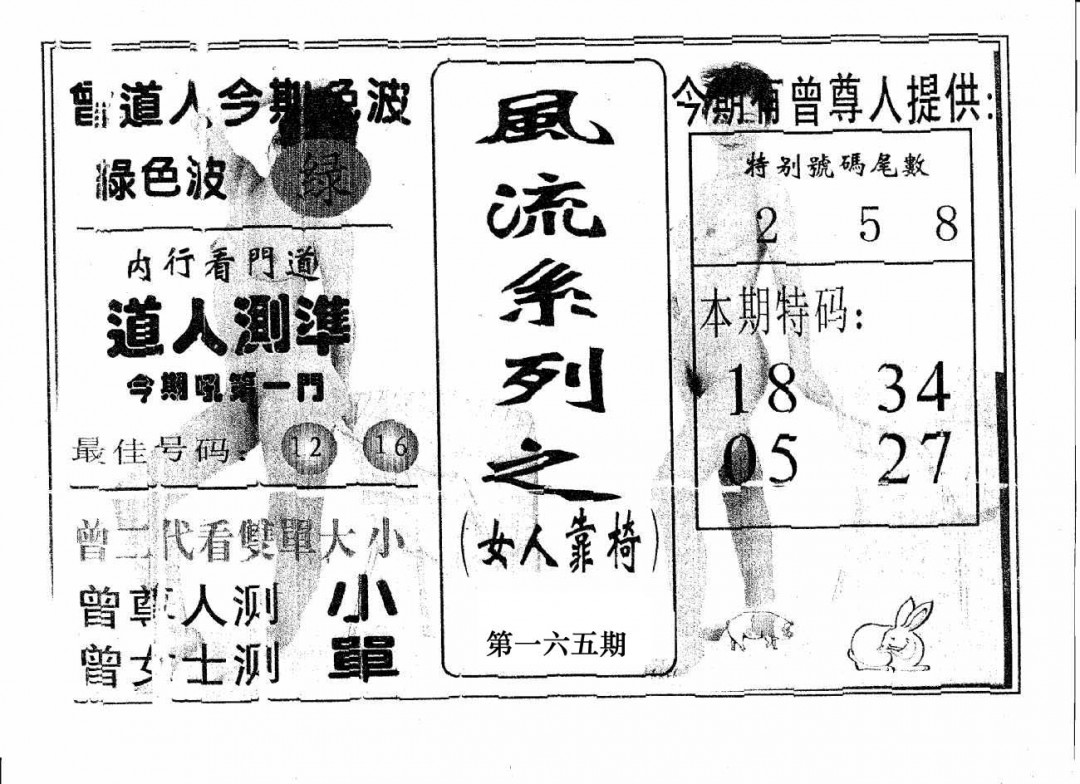 曾道人今期色波
綠色波
绿
内行看門道
道人測準
今期吼第一門
最佳号码：
12 16
曾二代看雙單大小
曾尊人测 小
曾女士测 單
風流系列之
（女人靠椅）
第一六五期
今期有曾尊人提供：
特别號碼尾數
2 5 8
本期特码：
18 34
05 27